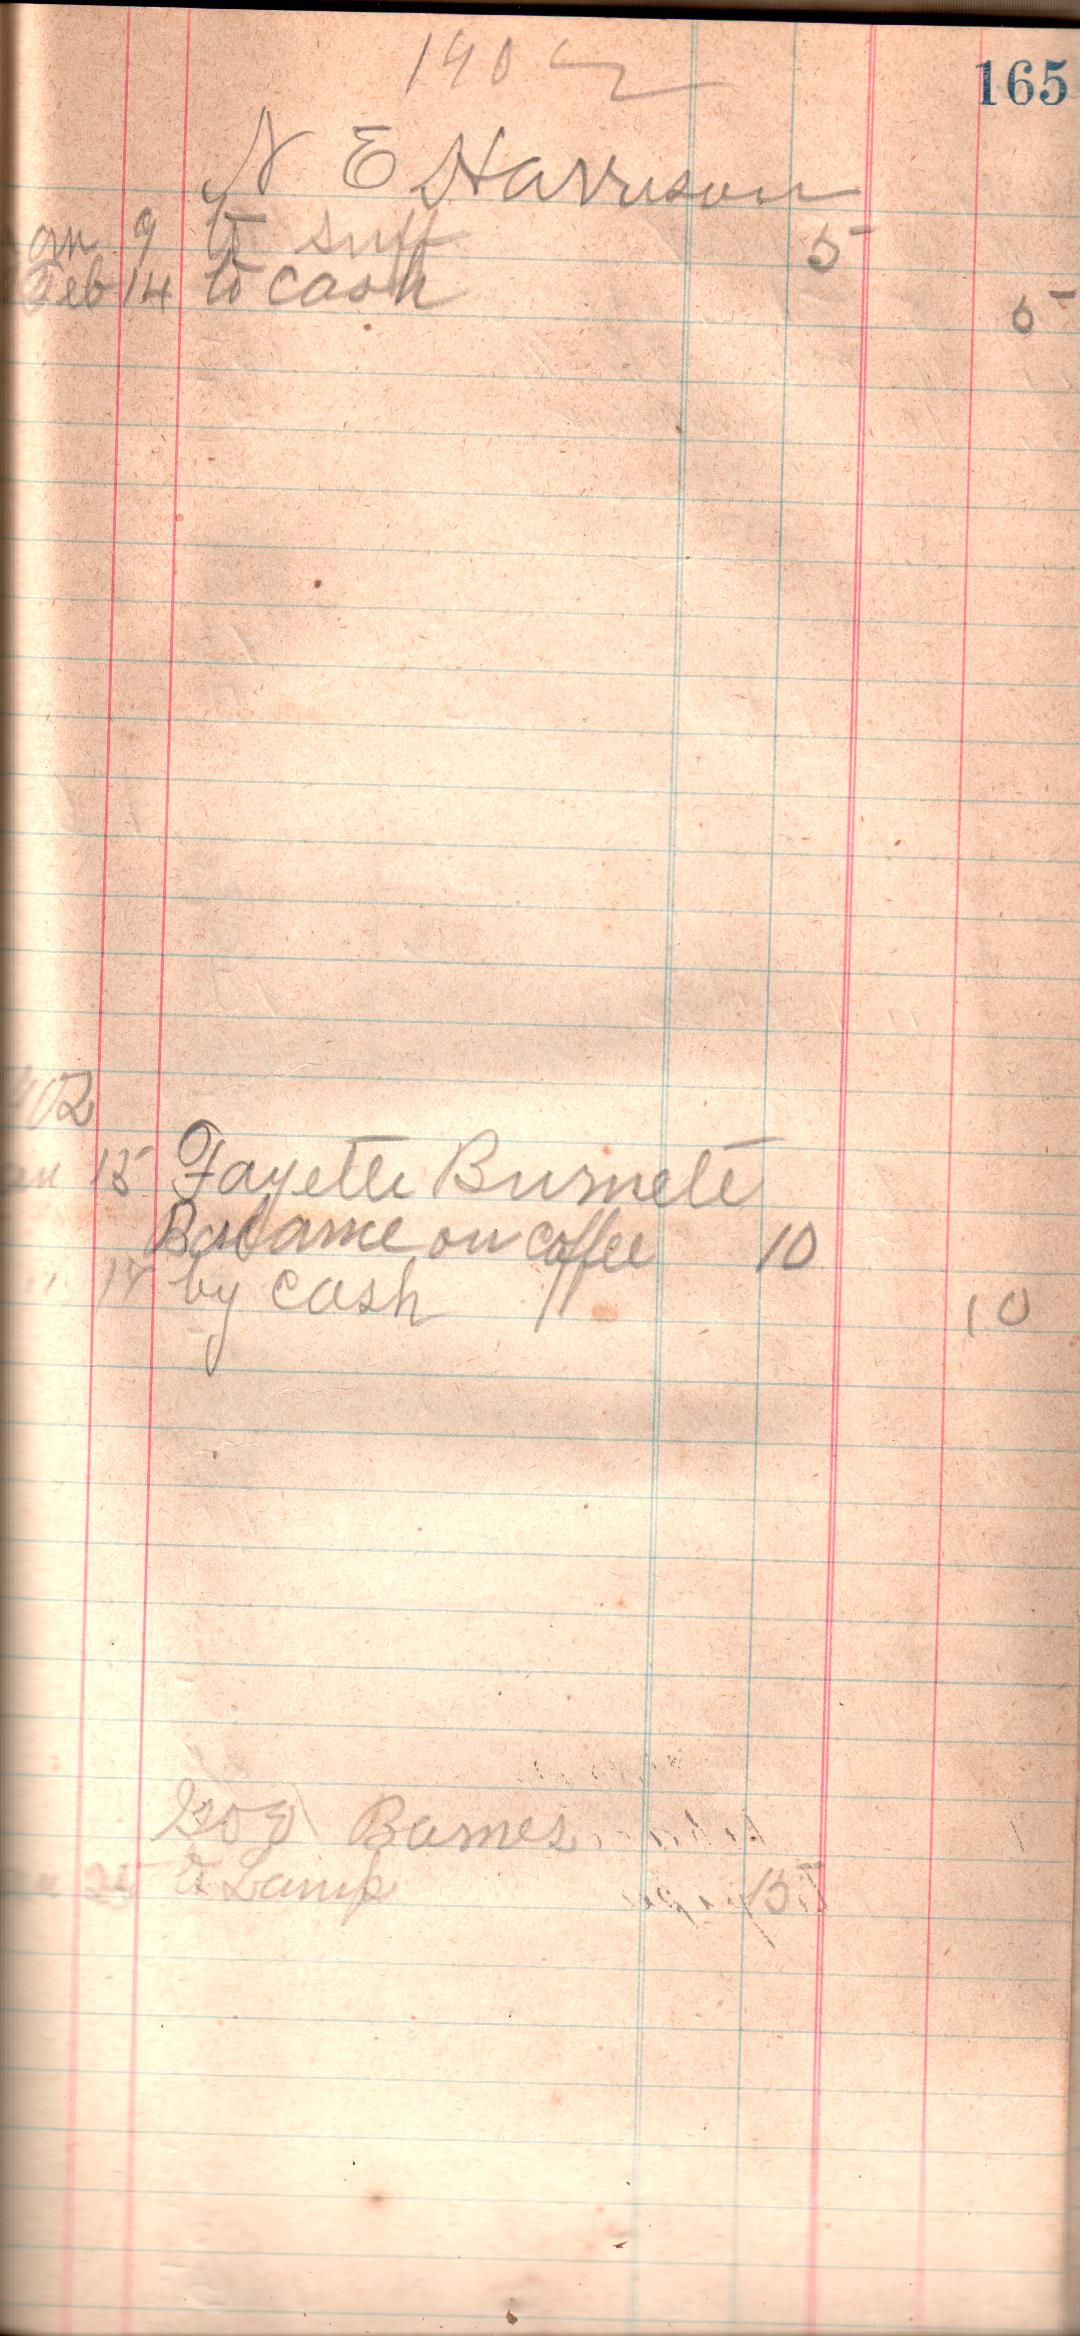 1902
165
N E Harrison
an 9 to snff 5
Feb 14 to cash 5
902
an 15 Fayette Burnett
Balance on coffee 10
" 17 by cash 10
Barnes
25 to Lamp 15